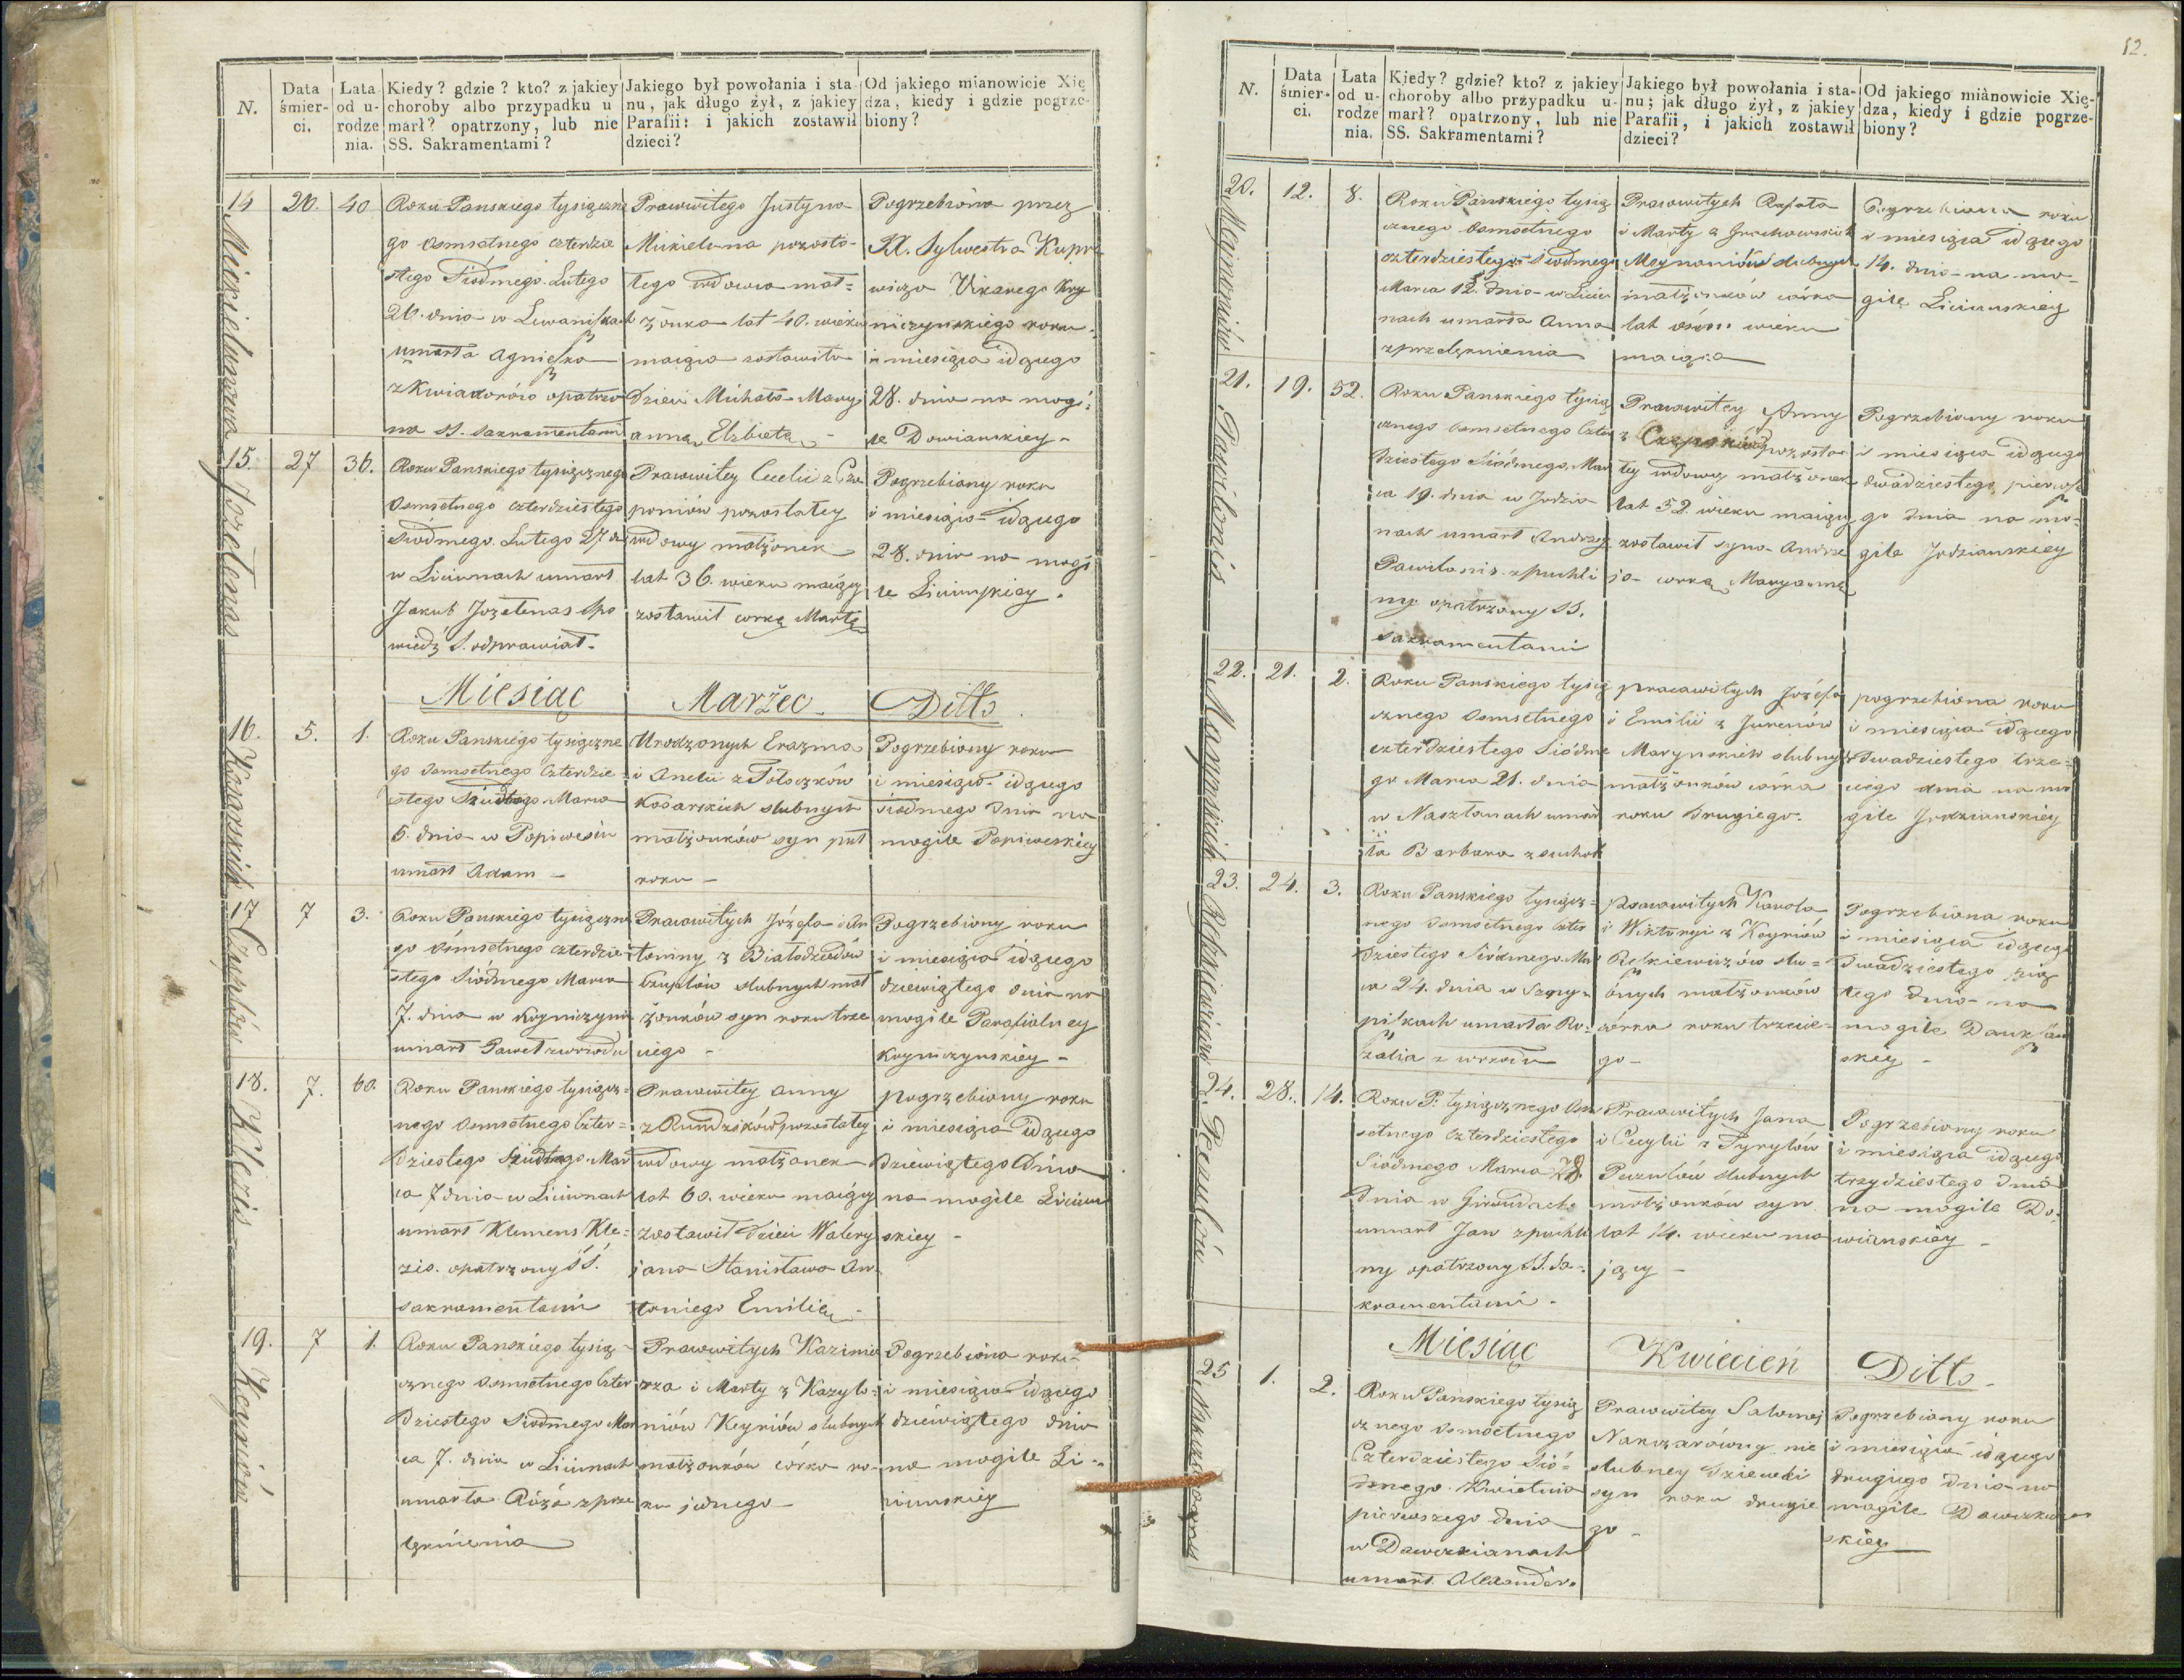 N.
Data śmier-
ci.
Lata od u-
rodze
nia.
Kiedy? gdzie? kto? z jakiey
choroby albo przypadku u
marł? opatrzony, lub nie
SS. Sakramentami?
Jakiego był powołania i sta
nu, jak długo żył, z jakiey
Parafii: i jakich zostawił
dzieci?
Od jakiego mianowicie Xię
dza, kiedy i gdzie pogrze-
biony?
14
20.
40
Roku Panskiego tysiączne
go osmsetnego czterdzie
stego Siódmego Lutego
20. dnia w
umarła Agnieszka
opatrzo
na SS. Sakramentami
Prawowitego Justyna
pozosta-
łego wdowca mał-
żonka lat 40. wieku
maiąca zostawiła
dzieci Michała Mary
annę, Elżbietę
Pogrzebiona przez
X. Sylwestra
Wikarego Kry
niczynskiego roku
i miesiąca idącego
28. dnia na mogi-
le Dowianskiey
15.
27
36.
Jozełenas
Roku Panskiego tysiącznego
Osmsetnego czterdziestego
Siódmego Lutego 27 d
w Liciunach umarł
Jakub Jozełenas spo
wiedź S. odprawiał.
Prawowitey Cecelii z
poniów pozostałey
wdowy małżonek
lat 36. wieku maiący
zostawił corkę Martę
Pogrzebiony roku
i miesiąca idącego
28. dnia na mogi
le
Miesiąc Marzec Ditto
16.
5.
1.
Kosarskich
Roku Panskiego tysiączne
go osmsetnego czterdzie
stego Siódmego Marca
5. dnia w Popiwesiu
umarł Adam
Urodzonych Erazma
i Anelii z Tołoczków
Kosarskich slubnych
małżonków syn puł
roku
Pogrzebiony roku
i miesiąca idącego
siódmego dnia na
mogile Popiweskiey
17
7
3.
Roku Panskiego tysiączne
go ósmsetnego czterdzie
stego Siódmego Marca
7. dnia w
umarł Paweł zwrzodu
Prawowitych Józefa i An
toniny z Białodziedów
slubnych mał
żonków syn roku trze
ciego
Pogrzebiony roku
i miesiąca idącego
dziewiątego dnia na
mogile Parafialney
Kryniczynskiey
18.
7.
60.
Klezis
Roku Panskiego tysiącz-
nego osmsetnego Czter-
dziestego Siódmego Mar
ca 7 dnia w Liciunach
umarł Klemens Kle-
zis. opatrzony SS.
sakramentami
Prawowitey Anny
z pozostałey
wdowy małżonek
lat 60. wieku maiący
zostawił dzieci Walery
jana Stanisława An-
toniego Emilię
pogrzebiony roku
i miesiąca idącego
Dziewiątego dnia
na mogile Liciun
skiey
19.
7
1.
Keyniów
Roku Panskiego tysią-
cznego osmsetnego Czter
dziestego siodmego Mar
ca 7. dnia w Liciunach
umarła Róża zprze
lęknienia
Prawowitych Kazimie
rza i Marty z Kazyło-
niów Keyniów slubnych
małżonków córka ro-
ku jednego
Pogrzebiona roku
i miesiąca idącego
dziewiątego dnia
na mogile Li-
ciunskiey
12.
N.
Data śmier-
ci.
Lata od u-
rodze
nia.
Kiedy? gdzie? kto? z jakiey
choroby albo przypadku u-
marł? opatrzony, lub nie
SS. Sakramentami?
Jakiego był powołania i sta-
nu; jak długo żył, z jakiey
Parafii, i jakich zostawił
dzieci?
Od jakiego miànowicie Xię-
dza, kiedy i gdzie pogrze-
biony?
20.
12.
8.
Roku Panskiego tysią
cznego Osmsetnego
czterdziestego Siodmego
Marca 12. dnia w Liciu
nach umarła Anna
zprzelęknienia
Prawowitych Rafała
i Marty z
slubnych
małżonków córka
lat ośm wieku
maiąca
Pogrzebiona roku
i miesiąca idącego
14. dnia na mo-
gile Liciunskiey
21.
19.
52.
Pawiłonis
Roku Panskiego tysią
cznego osmsetnego Czter
dziestego Siódmego Mar
ca 19. dnia w Jodzia
nach umarł Andrzej
Pawiłonis zpuchli
ny opatrzony SS.
sakramentami
Prawowitey Anny
z pozostał
ey wdowy małżonek
lat 52. wieku maiący
zostawił syna Andrze
ja corkę Maryannę
Pogrzebiony roku
i miesiąca idącego
dwadziestego pierwsze
go dnia na mo-
gile Jodzianskiey
22.
21.
2.
Marynskich
Roku Panskiego tysią
cznego Osmsetnego
czterdziestego Siódme
go Marca 21. dnia
w Nasztanach umar
ła Barbara zsuchot
prawowitych Jozefa
i Emilii z Jurenów
Marynskich slubnych
małżonków córka
roku drugiego.
pogrzebiona roku
i miesiąca idącego
Dwadziestego trze-
ciego dnia na mo
gile Jodzianskiey
23.
24.
3.
Roku Panskiego tysiącz-
nego osmsetnego Czter
dziestego Siódmego Mar
ca 24. dnia w
umarła Ro-
zalia z wrzodu
Prawowitych Karola
i Wiktoryi z Keyniów
slu-
bnych małżonków
córka roku trzecie-
go
Pogrzebiona roku
i miesiąca idącego
Dwadziestego pią
tego dnia na
mogile
skiey
24.
28.
14.
Peczulów
Roku P. tysiącznego Osm
setnego czterdziestego
Siódmego Marca 28.
Dnia w
umarł Jan zpuchli
ny opatrzony SS. Sa-
kramentami.
Prawowitych Jana
i Cecylii z
Peczulów slubnych
małżonków syn
lat 14. wieku ma
jący
Pogrzebiony roku
i miesiąca idącego
trzydziestego dnia
na mogile Do-
wianskiey
Miesiąc Kwiecień Ditto
25
1.
2.
Roku Panskiego tysią
cznego osmsetnego
Czterdziestego Sió-
dmego Kwietnia
pierwszego dnia
w Dawczianach
umarł Alexander.
Prawowitey Salomei
nie
slubney dziewki
syn roku drugie
go
Pogrzebiony roku
i miesiąca idącego
drugiego dnia na
mogile
skiey